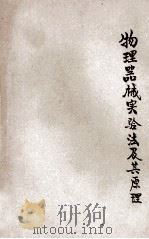 物理器械实验法及其原理